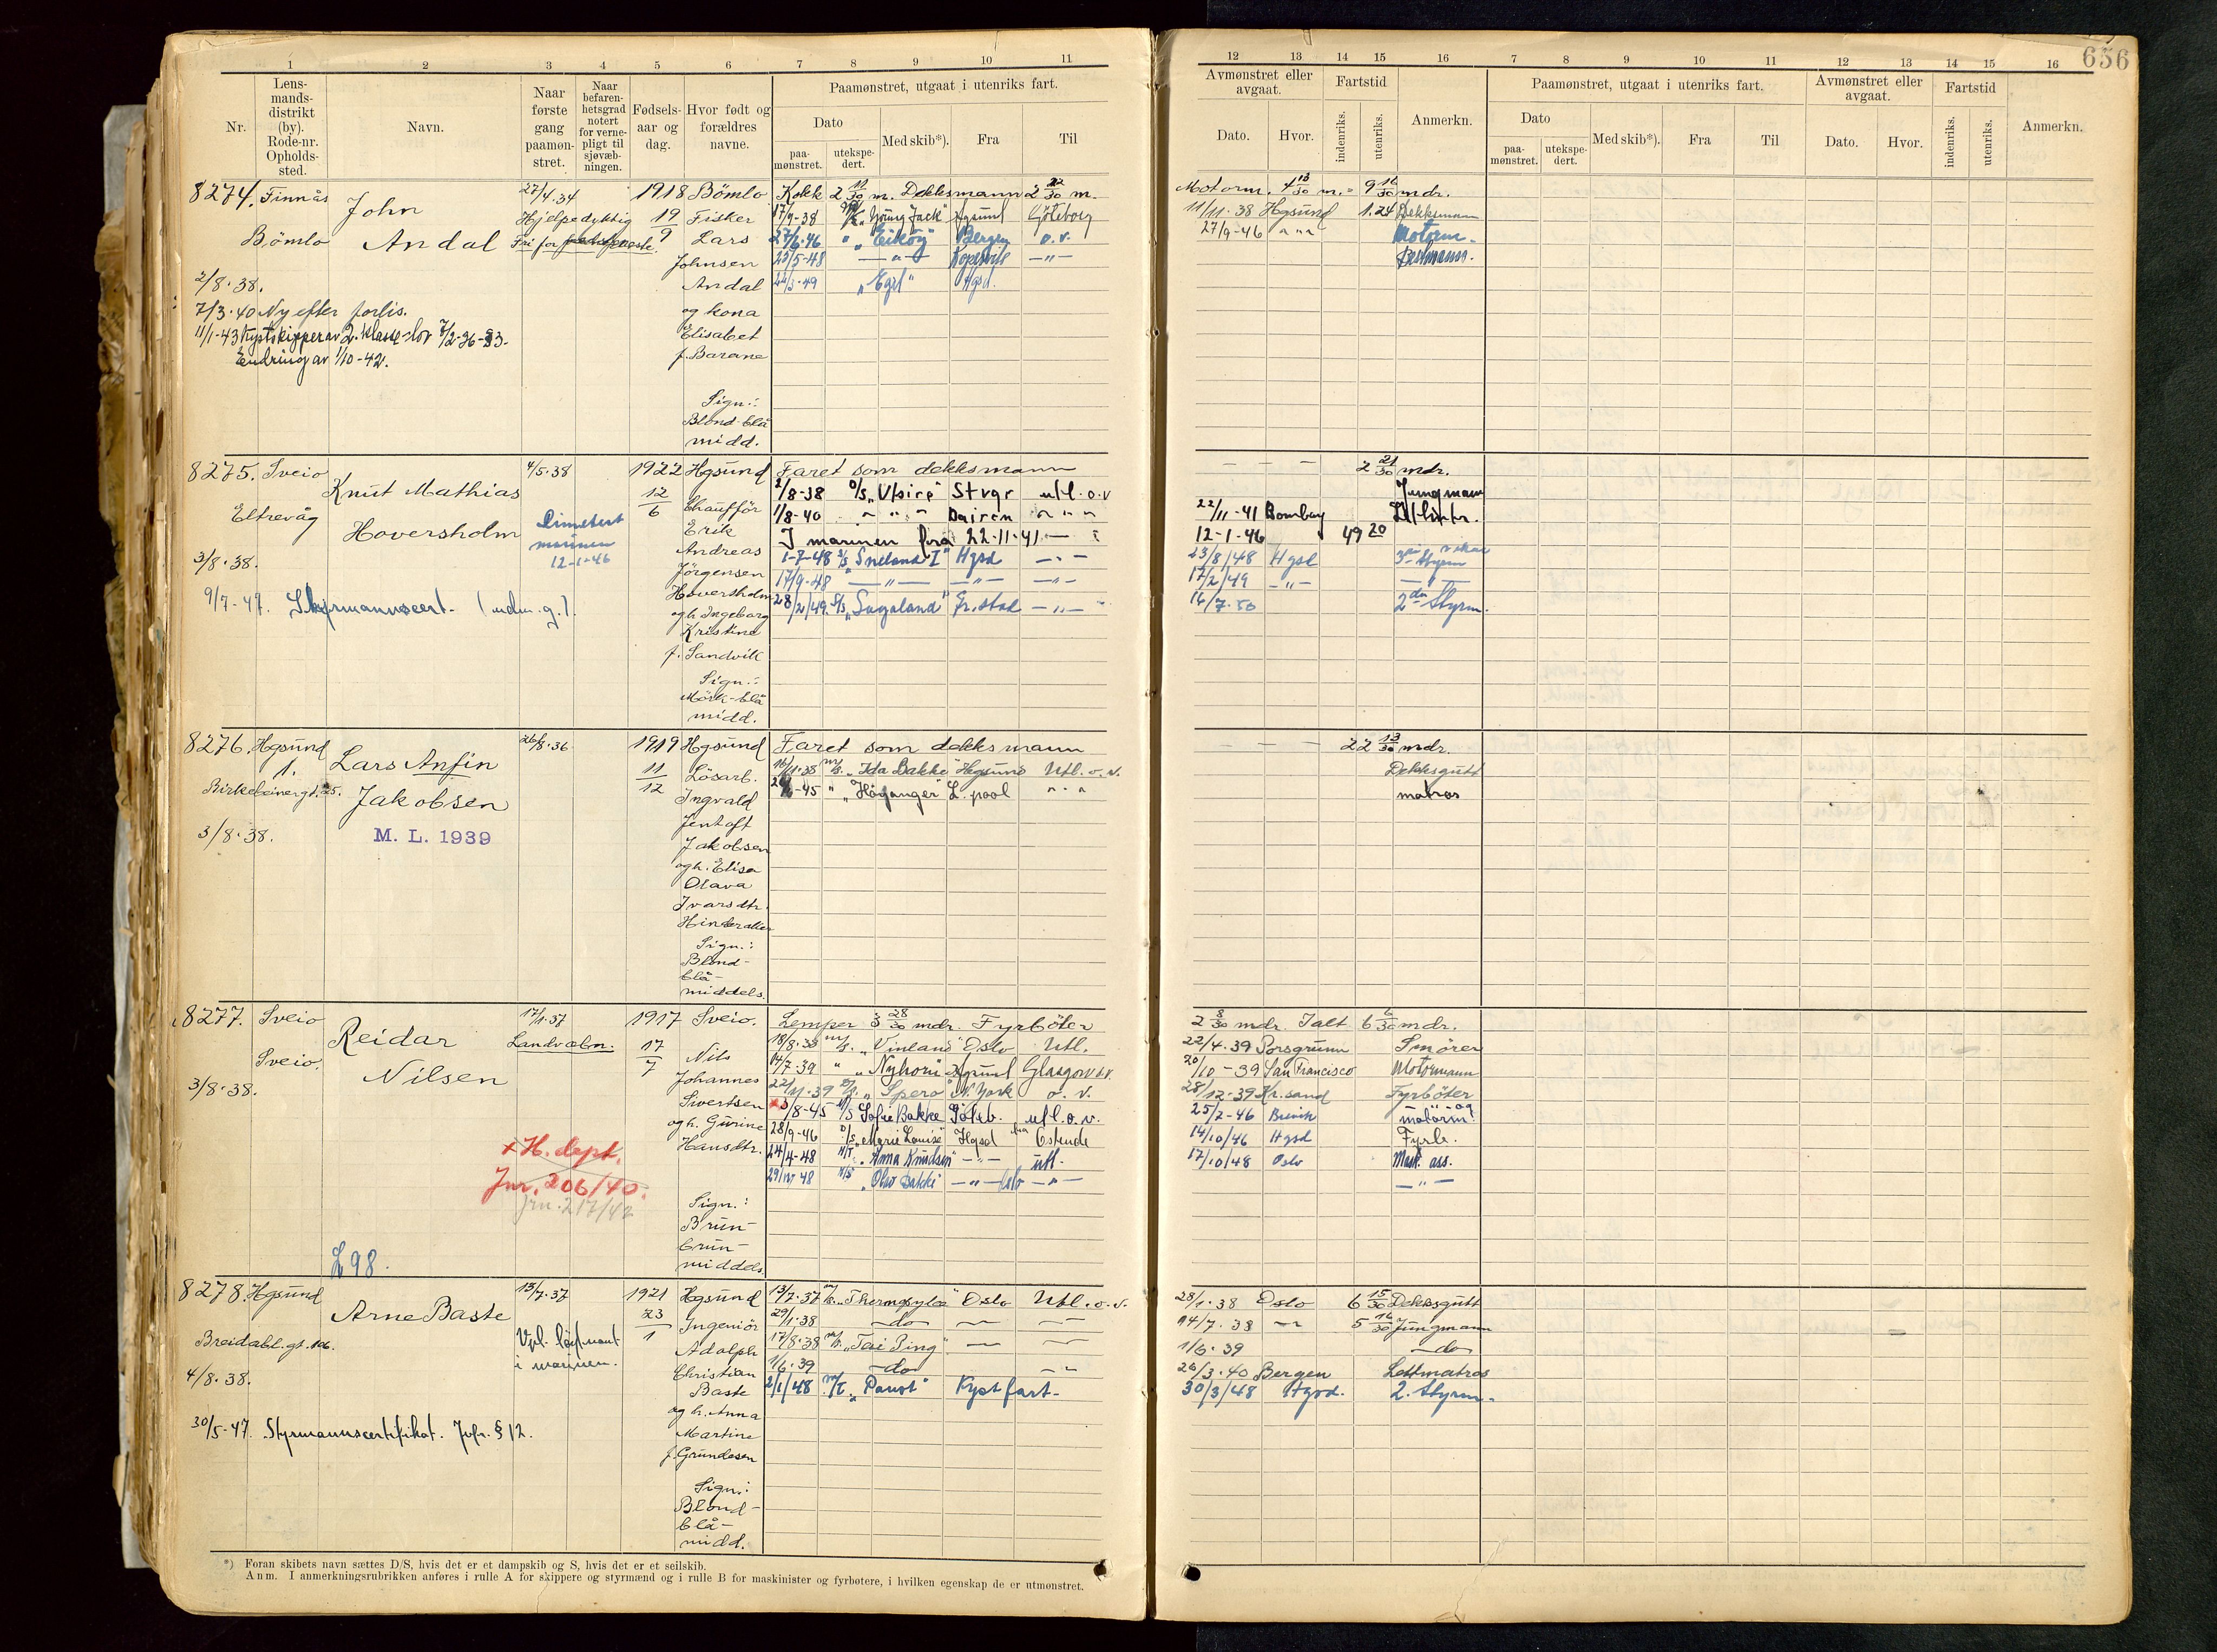 656
1 2 3 4 5 6 7 8 9 10 11
12 13 14 15 16 7 8 9 10 11 12 13 14 15 16
Nr.
Lens-
mands-
distrikt
(by).
Rode-nr.
Opholds-
sted.
Navn.
Naar
første
gang
paamøn-
stret.
Naar
befaren-
hetsgrad
notert
for verne-
pligt til
sjøvæb-
ningen.
Fødsels-
aar og
dag.
Hvor født og
forældres
navne.
Paamønstret, utgaat i utenriks fart.
Dato
paa-
mønstret.
utekspe-
dert.
Med skib*).
Fra
Til
Avmønstret eller
avgaat.
Dato.
Hvor.
Fartstid
indenriks.
utenriks.
Anmerkn.
Paamønstret, utgaat i utenriks fart.
Dato
paa-
mønstret.
utekspe-
dert.
Med skib*).
Fra
Til
Avmønstret eller
avgaat.
Dato.
Hvor.
Fartstid
indenriks.
utenriks.
Anmerkn.
8274. Finnås
Bömlo
2/8.38.
John
Andal
27/4.34
Hjelpedyktig
Fri for
1918
19/9
Bömlo
Fisker
Lars
Johnsen
Andal
og kona
Elisabet
f. Barane
Sign.:
Blond-blå
midd.
7/3.40 Ny efter forlis.
11/1-43 Kystskipper av 2. klasse
Endring av 1/10-42.
Kokk 2 11/30 m. Dekksmann 2 22/30 m.
Motorm. 4 13/30 m. = 9 16/30 mdr.
17/9-38 "Young Jack" Hgsund Göteborg
11/11.38 Hgsund 1.24 Dekksmann
27/6.46 " "Eiköy" Bergen o.v.
27/9-46 Motorm.
25/5-48 — " — Kopervik — " —
"Egil" Hgsd.
8275. Sveio
Eltrevåg
3/8.38.
Knut Mathias
Hoversholm
4/5.38
Dimittert
marinen
12-1-46
1922
12/6
Hgsund
Chaufför
Erik
Andreas
Jörgensen
Hoversholm
og h. Ingeborg
Kristine
f. Sandvik
Sign.:
Mörk-blå
midd.
9/7-47. Styrmannscert.
Faret som dekksmann
2 21/30 mdr.
2/8-38 D/S "Utsire" Stvgr utl. o.v
Jungmann
1/8-40 Dairen
22/11-41 Bombay
I marinen fra 22-11-41
12-1-46 49 20
1-7-48 "Sneland I" Hgsd
23/8/48 Hgsd
17/9-48 — " —
17/2/49 — " —
28/2/49 "Sagaland" Fr.stad — " —
16/7-50 2den Styrm.
8276. Hgsund
1.
Birkebeinergt. 25.
3/8.38.
Lars Anfin
Jakobsen
M. L. 1939
26/8.36
1919
11/12
Hgsund
Lösarb.
Ingvald
Jentoft
Jakobsen
og h. Elise
Olava
Ivarsdtr.
Sign.:
Blond-
blå-
middels.
Faret som dekksmann
22 13/30 mdr.
"Ida Bakke" Hgsund Utl. o. v.
Dekksgutt
"Höyanger" L.pool
matros
8277. Sveio
Sveio.
3/8.38.
Reidar
Nilsen
L98
17/1.37
Landvæbn.
x H. dept.
Jnr. 206/40.
Jrn. 217/42
1917
17/7
Sveio.
Nils
Johannes
Sivertsen
og h. Gurine
Hansdtr.
Sign.:
Brun-
brun-
middels.
Lemper 3 28/30 mdr. Fyrböter
2 8/30 mdr. Ialt 6 6/30 mdr.
18/8.38 m/s. "Vinland" Oslo Utl.
22/4.39 Porsgrunn Smörer
14/7.39 " "Nyhorn" Hgsund Glasgow o.v.
20/10-39 San Francisco Motormann
22/11.39 "Spero" N. York o. v.
28/12.39 Kr.sand Fyrböter
3/8-45 M/S Sofie Bakke Göteb. utl. o. v.
25/2-46 Brevik og motorm.
28/9-46 D/S "Marie Louise" Hgsd fra Ostende
14/10/46 Hgsd Fyrb.
24/4-48 M/T "Anna Knudsen" — " — utl.
17/10/48 Oslo Mask. ass.
29/10 48 M/S "Olav Bakke" — " — Oslo — " —
— " —
8278. Hgsund
Breidabl. gt. 106.
4/8.38.
Arne Baste
13/7.37
Vpl. löytnant
i marinen.
1921
23/1
Hgsund
Ingeniör
Adolph
Christian
Baste
og h. Anna
Martine
f. Grundesen
Sign.:
Blond-
blå-
midd.
30/5-47. Styrmannscertifikat. Jvfr. § 12.
13/7.37 m/s. "Thermopylæ" Oslo Utl. o. v.
28/1.38 Oslo 6 15/30 Dekksgutt
29/1.38 — do —
14/7.38 5 16/30 Jungmann
17/8.38 m/s. "Tai Ping"
1/6.39 — do —
1/6.39 — do —
26/3.40 Bergen Lettmatros
2/1/48 M/T "Panot" Kystfart
30/3/48 Hgsd. 2. Styrm.
*) Foran skibets navn sættes D/S, hvis det er et dampskib og S, hvis det er et seilskib.
Anm. I anmerkningsrubrikken anføres i rulle A for skippere og styrmænd og i rulle B for maskinister og fyrbøtere, i hvilken egenskap de er utmønstret.